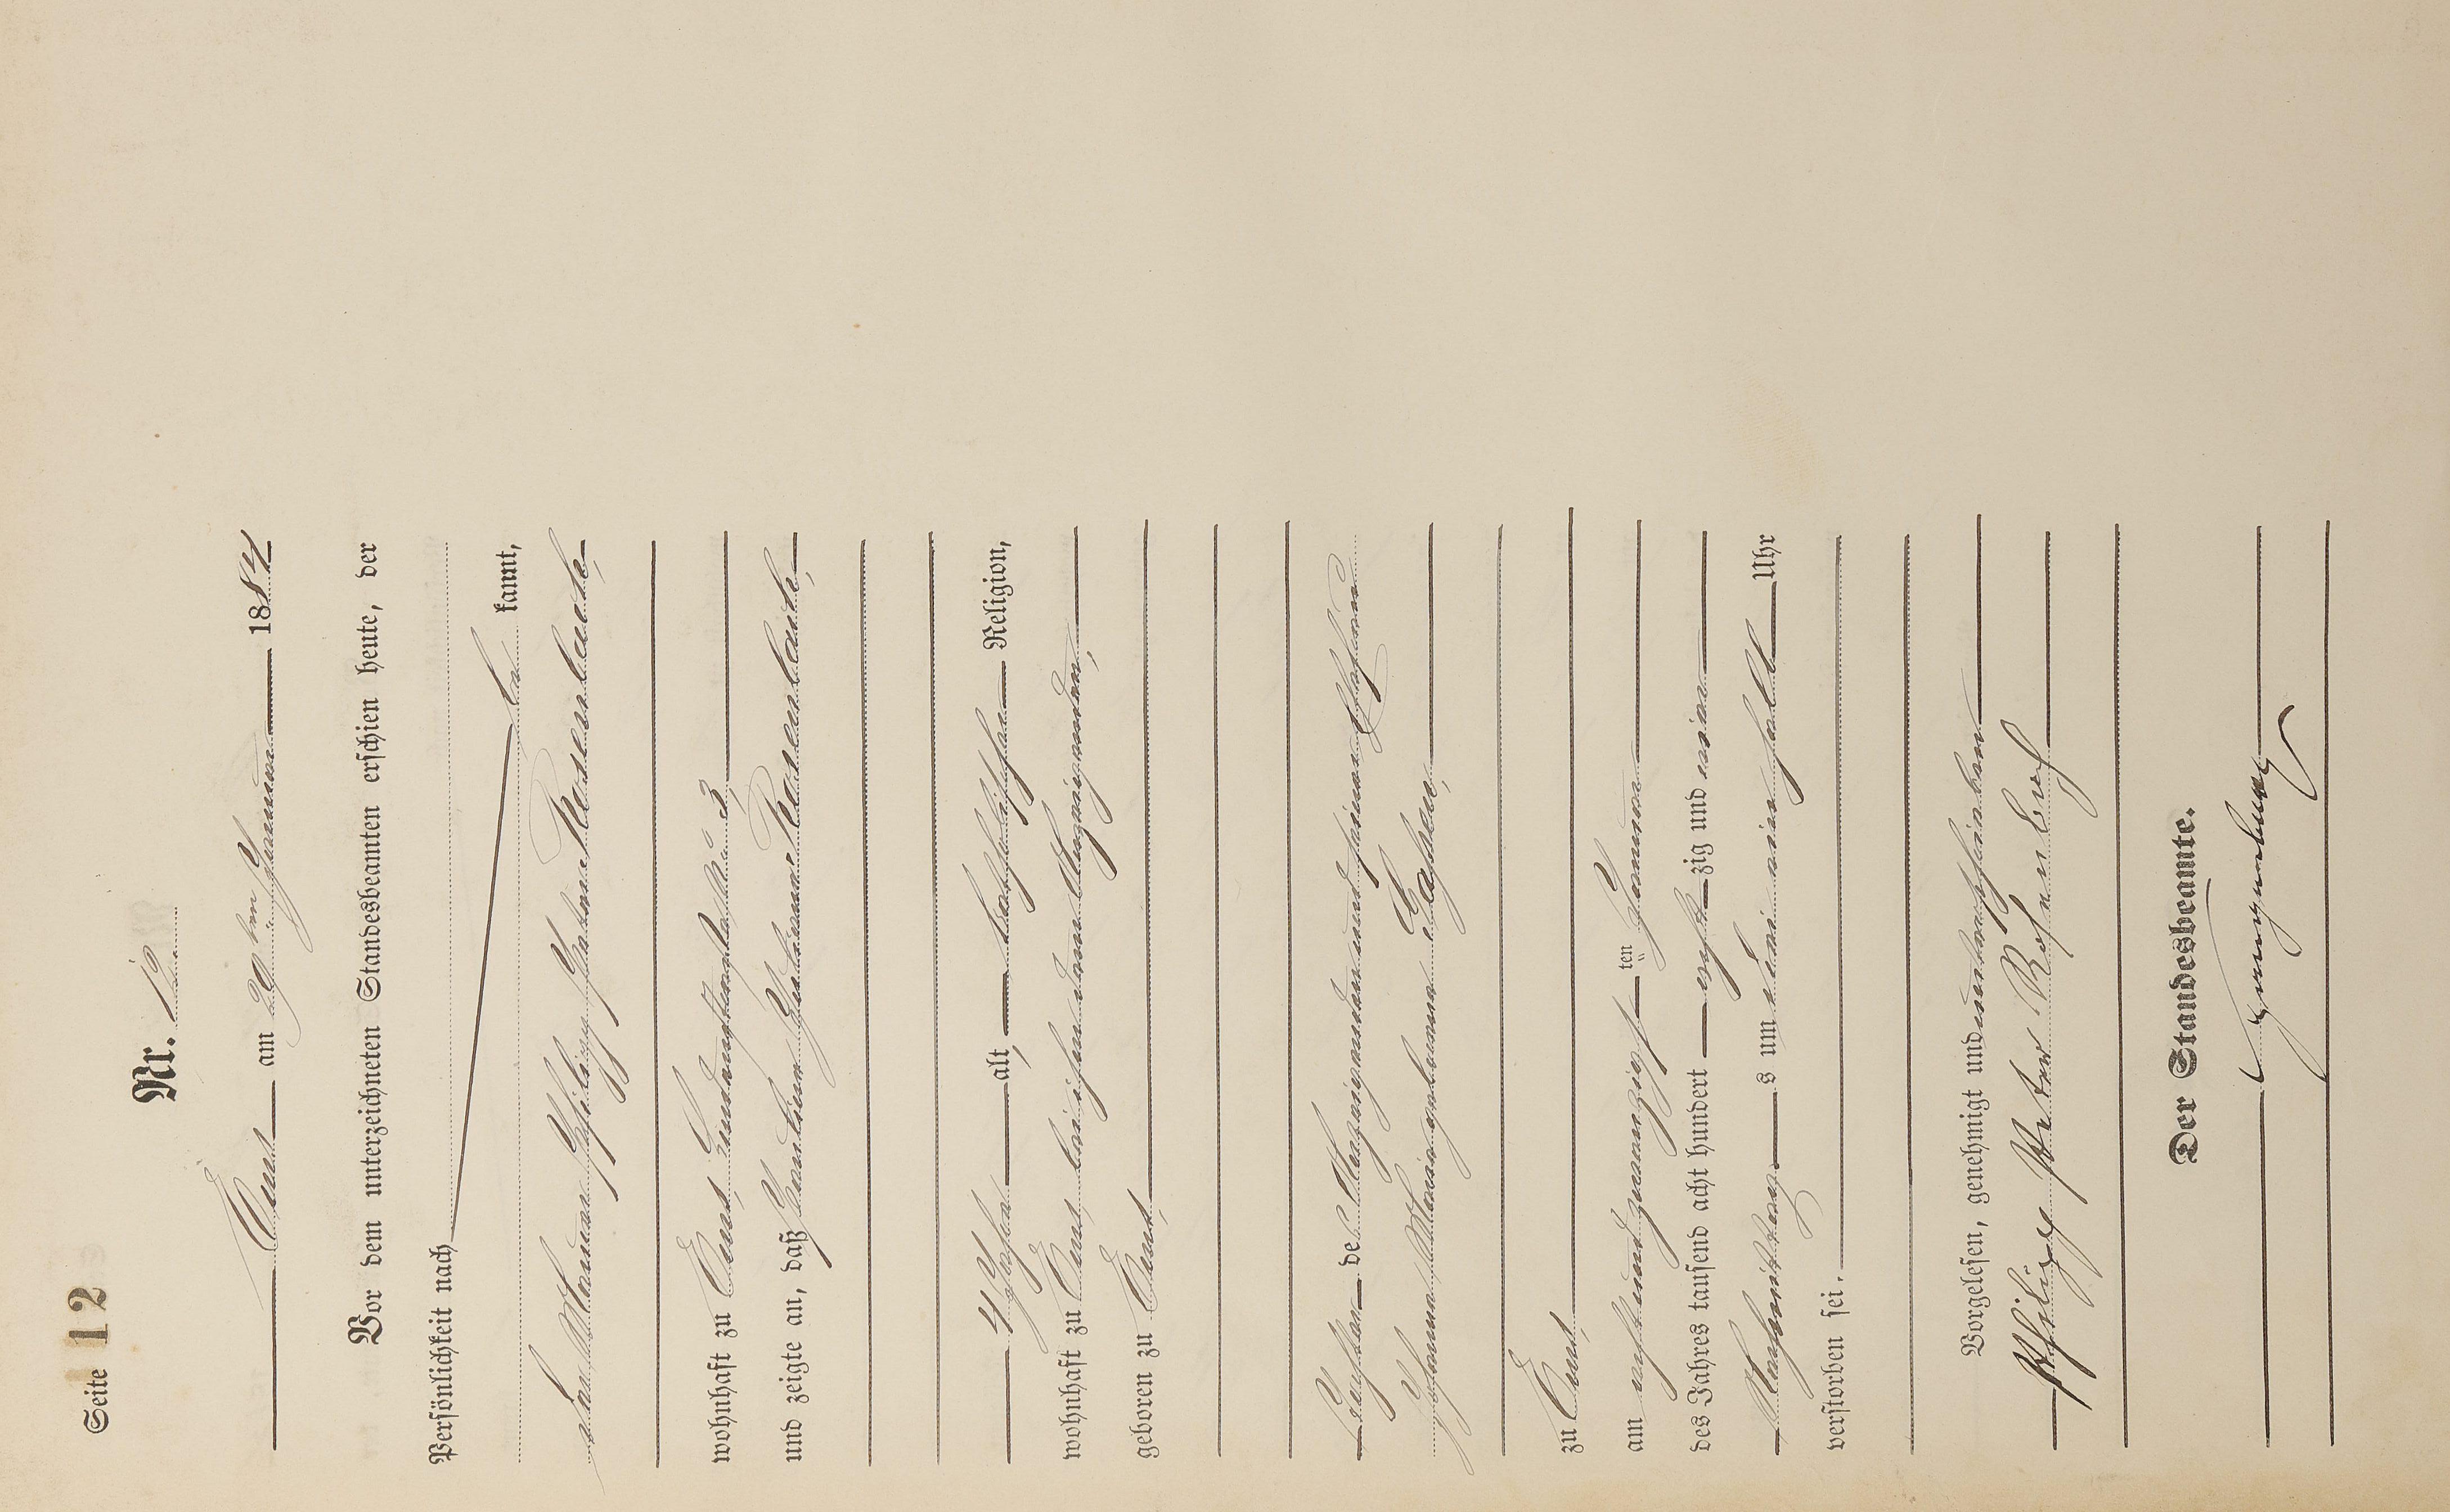 Seite 12
Nr. 12.
Ems am 29ten Januar 1884
Vor dem unterzeichneten Standesbeamten erschien heute, der
Persönlichkeit nach
be kannt,
der Philipp Peter
wohnhaft zu Ems, No 3,
und zeigte an, daß
4 Jahre alt, katholischer Religion,
wohnhaft zu Ems bei ihm dem Anzeigenden,
geboren zu Ems,
Tochter des Anzeigenden und seiner Ehefrau
Johanna Maria geborene
zu Ems,
am acht und zwanzigs ten Januar
des Jahres tausend acht hundert acht zig und vier
Nachmittags um ein halb Uhr
verstorben sei.
Vorgelesen, genehmigt und unterschrieben
Philipp Peter Rosenbach
Der Standesbeamte.